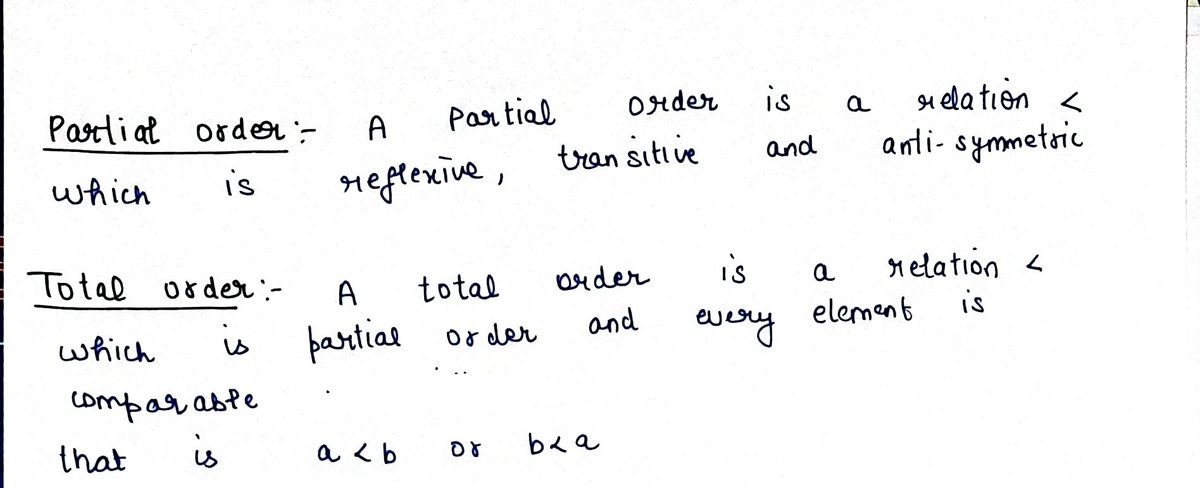 Partial order:- A Partial order is a relation <
which is reflexive, transitive and anti-symmetric
Total order:- A total order is a relation <
which is partial order and every element is
comparable
that is a < b or b < a